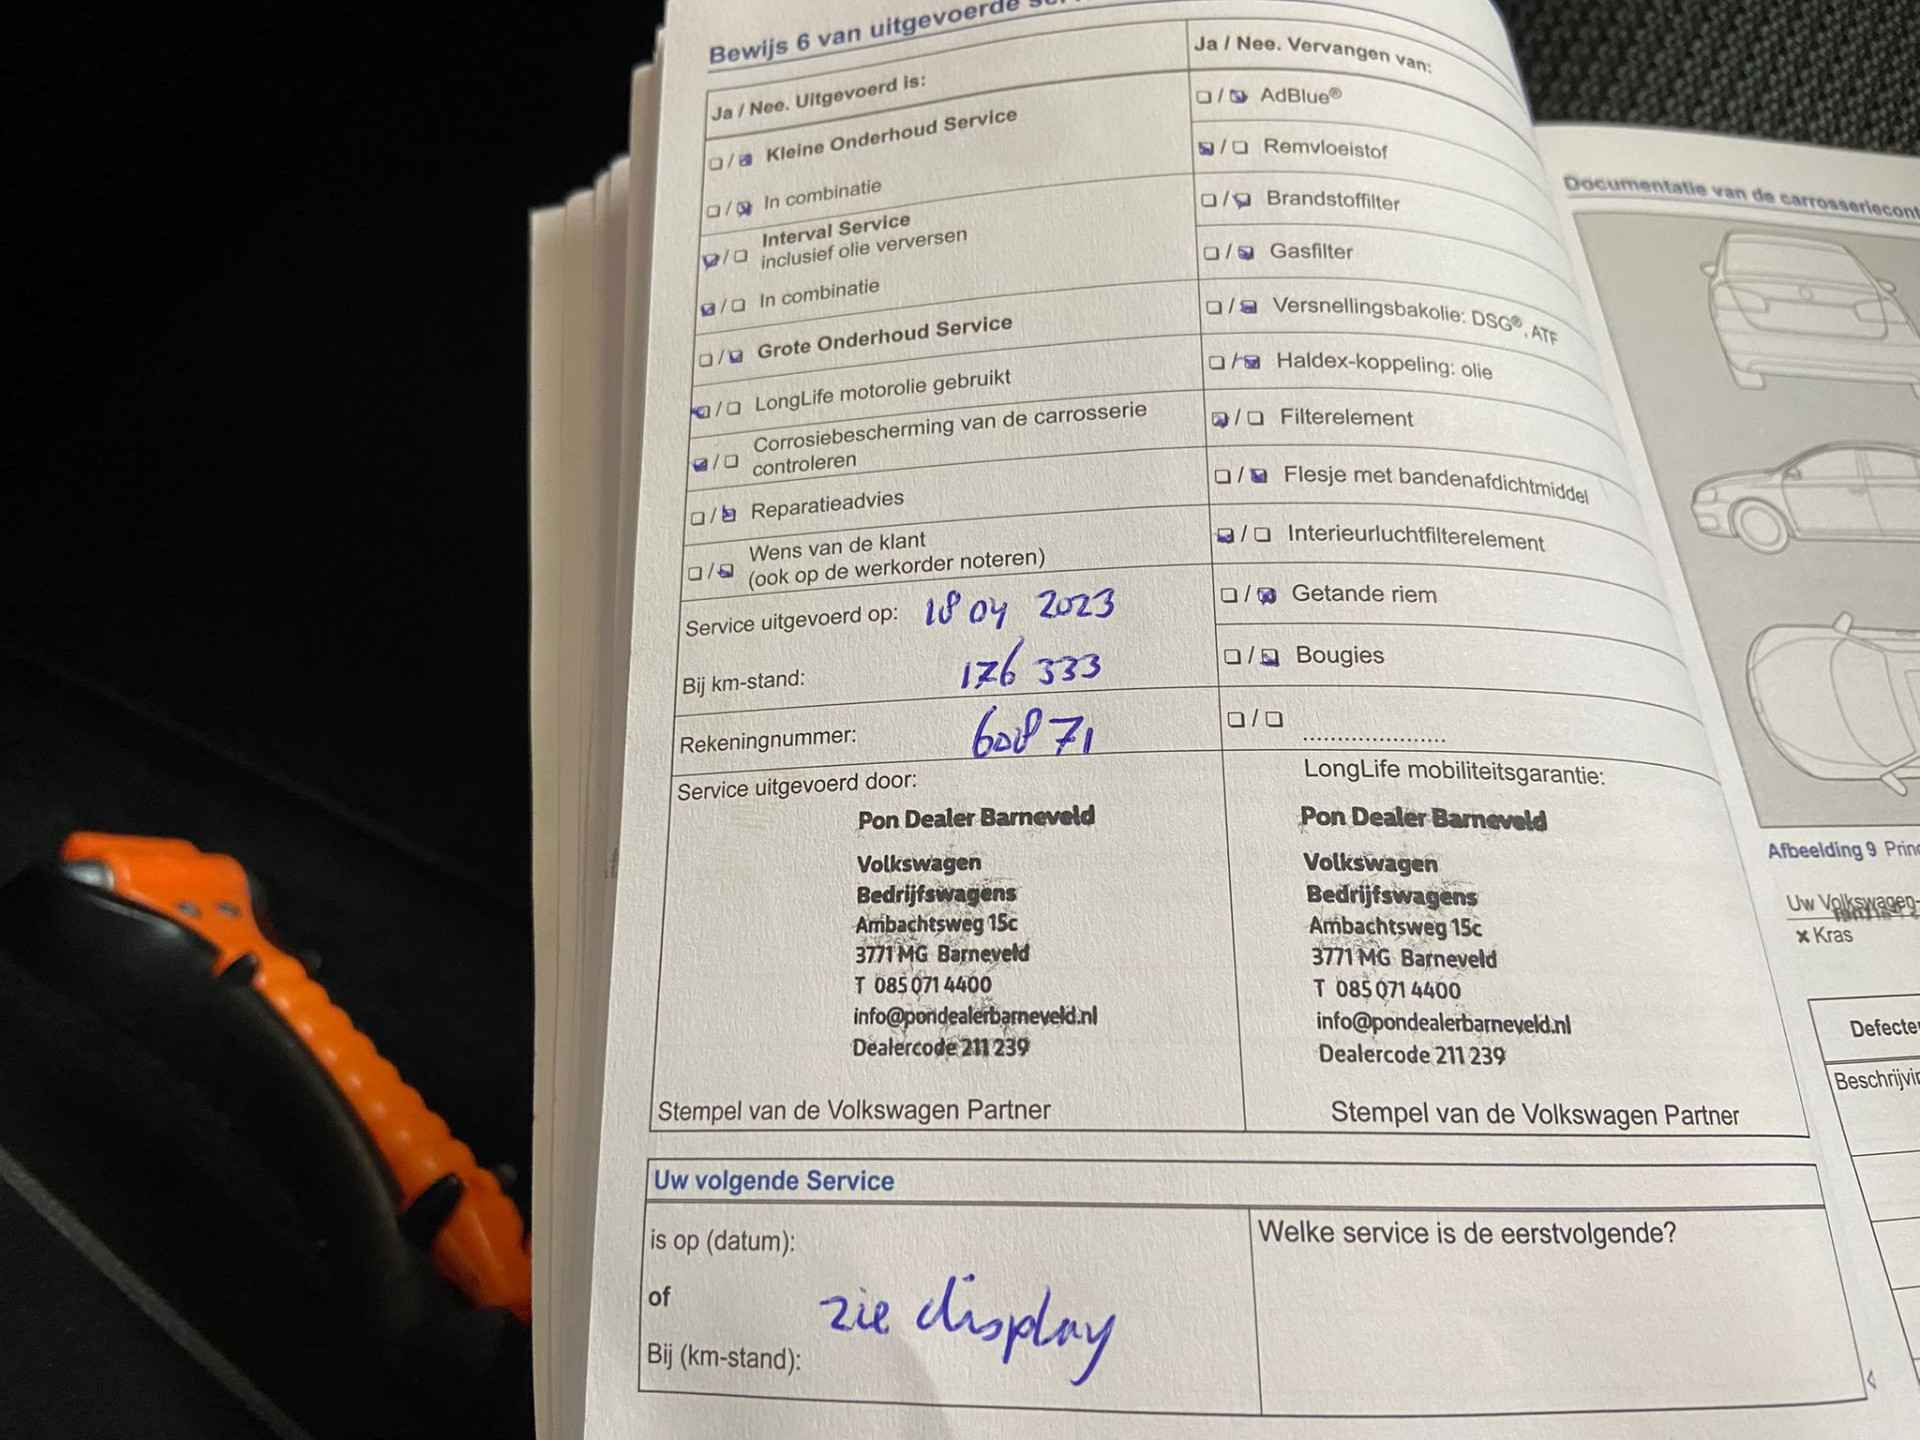 Bewijs 6 van uitgevoerde
Ja / Nee. Uitgevoerd is:
Kleine Onderhoud Service
In combinatie
Interval Service
inclusief olie verversen
In combinatie
Grote Onderhoud Service
LongLife motorolie gebruikt
Corrosiebescherming van de carrosserie
controleren
Reparatieadvies
Wens van de klant
(ook op de werkorder noteren)
Service uitgevoerd op: 18 04 2023
Bij km-stand: 176 333
Rekeningnummer: 60871
Ja / Nee. Vervangen van:
AdBlue®
Remvloeistof
Brandstoffilter
Gasfilter
Versnellingsbakolie: DSG®, ATF
Haldex-koppeling: olie
Filterelement
Flesje met bandenafdichtmiddel
Interieurluchtfilterelement
Getande riem
Bougies
....................
Service uitgevoerd door:
Pon Dealer Barneveld
Volkswagen
Bedrijfswagens
Ambachtsweg 15c
3771 MG Barneveld
T 085 071 4400
info@pondealerbarneveld.nl
Dealercode 211 239
Stempel van de Volkswagen Partner
LongLife mobiliteitsgarantie:
Pon Dealer Barneveld
Volkswagen
Bedrijfswagens
Ambachtsweg 15c
3771 MG Barneveld
T 085 071 4400
info@pondealerbarneveld.nl
Dealercode 211 239
Stempel van de Volkswagen Partner
Uw volgende Service
is op (datum):
of
zie display
Bij (km-stand):
Welke service is de eerstvolgende?
Documentatie van de
Afbeelding 9
Uw Volkswagen-
× Kras